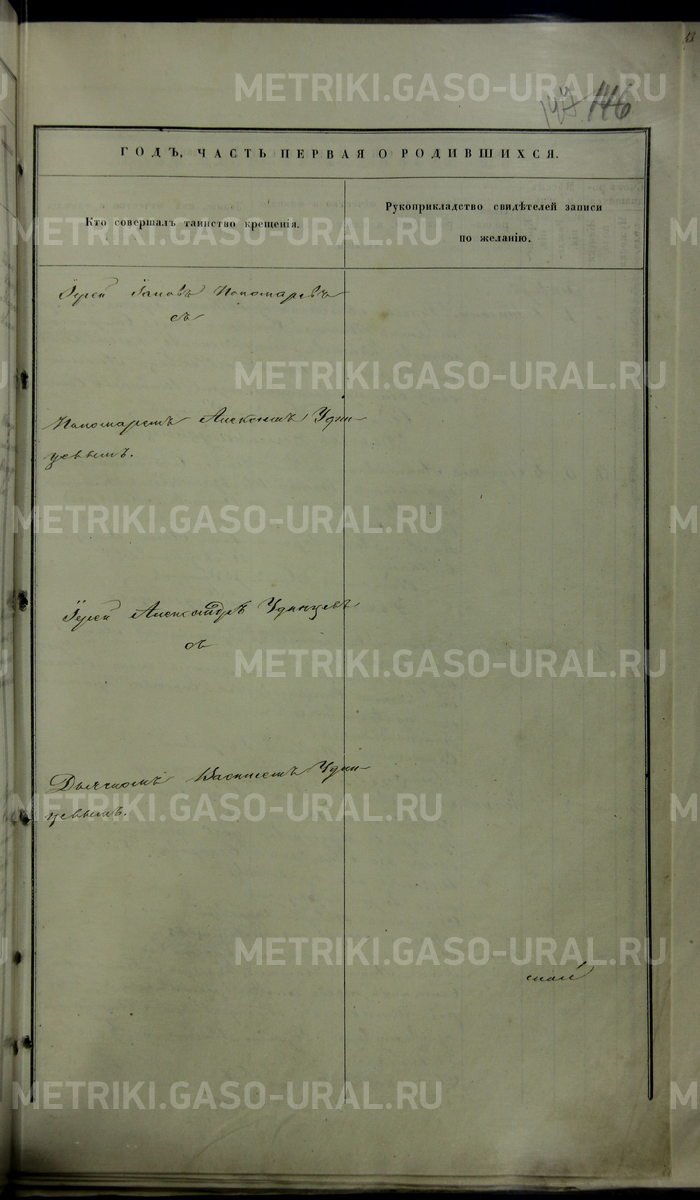 METRIKI.GASO-URAL.RU
147 146
ГОДЪ, ЧАСТЬ ПЕРВАЯ О РОДИВШИХСЯ.
Кто совершалъ таинство крещенія.
Рукоприкладство свидѣтелей записи
по желанію.
METRIKI.GASO-URAL.RU
Іерей Іаковъ Пономаревъ
съ
METRIKI.GASO-URAL.RU
Пономаремъ Алексеемъ Удин-
цевымъ.
METRIKI.GASO-URAL.RU
Іерей Александръ Удинцевъ
съ
METRIKI.GASO-URAL.RU
Дьячкомъ Василіемъ Удин-
цевымъ.
METRIKI.GASO-URAL.RU
METRIKI.GASO-URAL.RU
METRIKI.GASO-URAL.RU